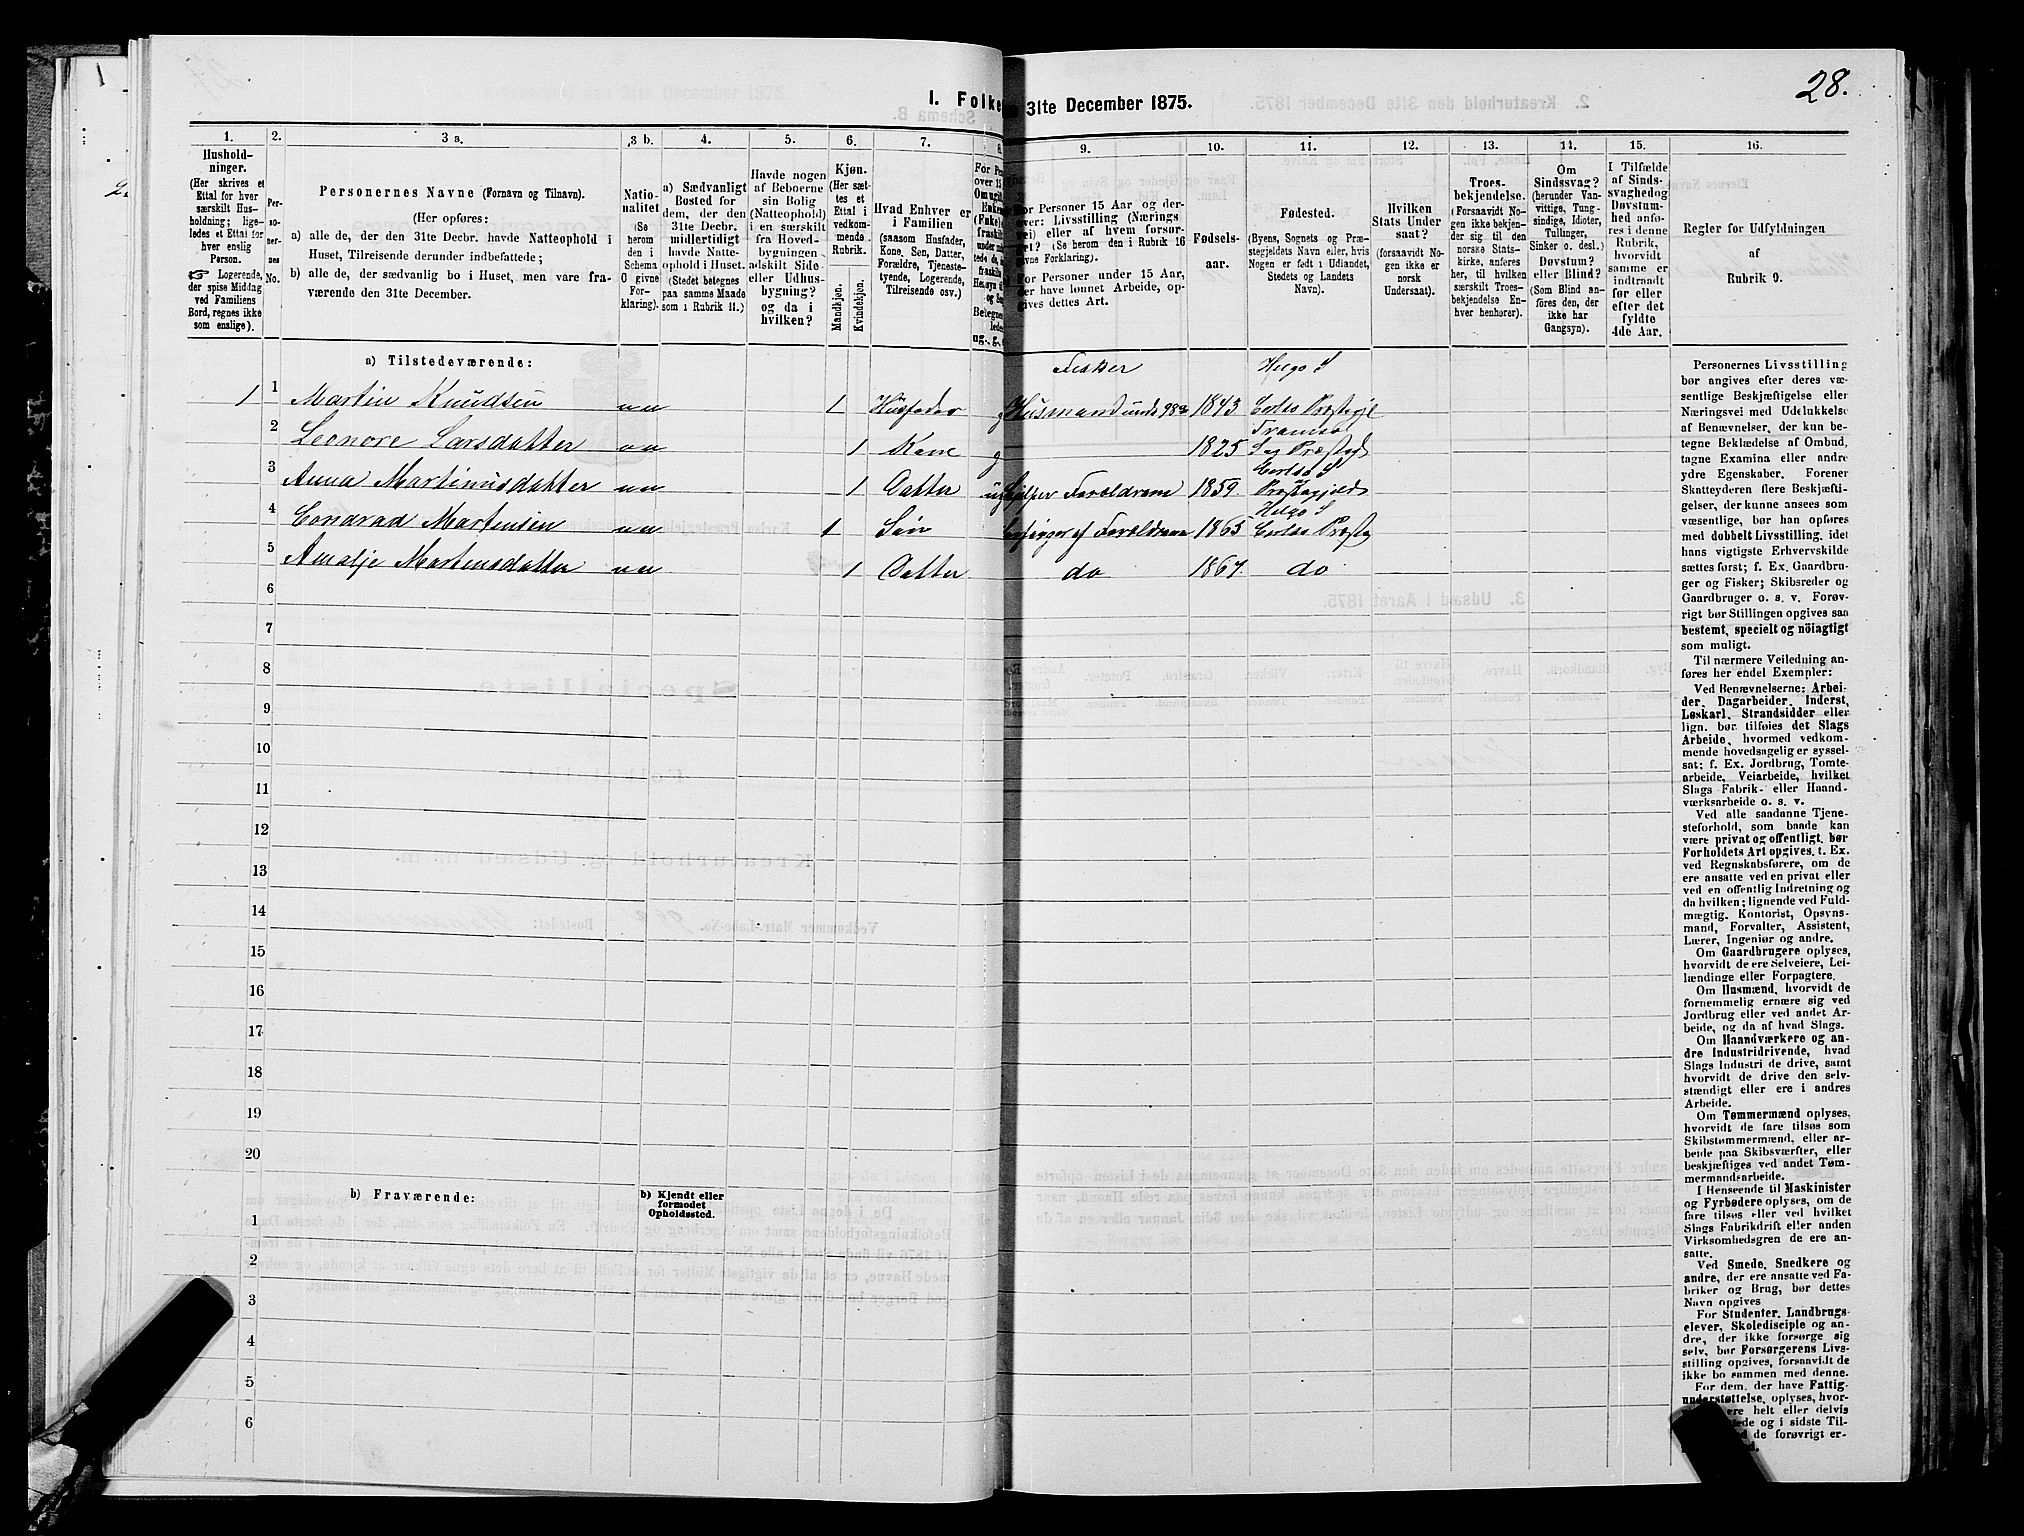 28.
I. Folke 31te December 1875.
1. 2. 3 a. 3 b. 4. 5. 6. 7. 8. 9. 10. 11. 12. 13. 14. 15. 16.
Hushold-
ninger.
(Her skrives et
Ettal for hver
særskilt Hus-
holdning; lige-
ledes et Ettal for
hver enslig
Person.
☞ Logerende,
der spise Middag
ved Familiens
Bord, regnes ikke
som enslige).
Per-
so-
ner-
nes
No.
Personernes Navne (Fornavn og Tilnavn).
(Her opføres:
a) alle de, der den 31te Decbr. havde Natteophold i
Huset, Tilreisende derunder indbefattede;
b) alle de, der sædvanlig bo i Huset, men vare fra-
værende den 31te December.
Natio-
nalitet
(Se
herom
den i
Schema
O givne
For-
klaring).
a) Sædvanligt
Bosted for
dem, der den
31te Decbr.
midlertidigt
havde Natte-
ophold i Huset.
(Stedet betegnes
paa samme Maade
som i Rubrik 11.)
Havde nogen
af Beboerne
sin Bolig
(Natteophold)
i en særskilt
fra Hoved-
bygningen
adskilt Side
eller Udhus-
bygning?
og da i
hvilken?
Kjøn.
(Her sæt-
tes et
Ettal i
vedkom-
mende
Rubrik.
Mandkjøn.
Kvindekjøn.
Hvad Enhver er
i Familien
(saasom Husfader,
Kone, Søn, Datter,
Forældre, Tjeneste-
tyende, Logerende,
Tilreisende osv.)
For Personer 15 Aar og der-
over: Livsstilling (Nærings
vei) eller af hvem forsør-
get? (Se herom den i Rubrik 16
givne Forklaring).
For Personer under 15 Aar,
der have lønnet Arbeide, op-
gives dettes Art.
Fødsels-
aar.
Fødested.
(Byens, Sognets og Præ-
stegjeldets Navn eller, hvis
Nogen er født i Udlandet,
Stedets og Landets
Navn).
Hvilken
Stats Under
saat?
(forsaavidt No-
gen ikke er
norsk
Undersaat).
Troes-
bekjendelse.
(Forsaavidt No-
gen ikke bekjen-
der sig til den
norske Stats-
kirke, anføres
her, til hvilken
særskilt Troes-
bekjendelse En-
hver henhører).
Om
Sindssvag?
(herunder Van-
vittige, Tung-
sindige, Idioter,
Tullinger,
Sinker o. desl.)
Døvstum?
eller Blind?
(Som Blind an-
føres den, der
ikke har
Gangsyn).
I Tilfælde
af Sinds-
svaghed og
Døvstum-
hed anfø-
res i denne
Rubrik,
hvorvidt
samme er
indtraadt
før eller
efter det
fyldte
4de Aar.
Regler for Udfyldningen
af
Rubrik 9.
a) Tilstedeværende:
Fisker Helgø S
1 1 Martin Knudsen nn 1 Husfader g Husmand under 98a 1843 Carlsø Præstegjl
Tromsø
2 Leonore Larsdatter nn 1 Kone g 1825 S og Præstegd
Carlsø S
3 Anna Martinusdatter nn 1 Datter ug hjelper Foreldrene 1859. Præstegjeld
Helgø S
4 Condrad Martensen nn 1 Søn forsørges af Forældrene 1865 Carlsø Præstg
5 Amalje Martensdatter nn 1 Datter do 1867. do
6
7
8
9
10
11
12
13
14
15
16
17
18
19
20
b) Fraværende:
b) Kjendt eller
formodet
Opholdssted.
1
2
3
4
5
6
Personernes Livsstilling
bør angives efter deres væ-
sentlige Beskjæftigelse eller
Næringsvei med Udelukkelse
af Benævnelser, der kun be-
tegne Beklædelse af Ombud,
tagne Examina eller andre
ydre Egenskaber. Forener
Skatteyderen flere Beskjæfti-
gelser, der kunne ansees som
væsentlige, bør han opføres
med dobbelt Livsstilling, idet
hans vigtigste Erhvervskilde
sættes først; f. Ex. Gaardbru-
ger og Fisker; Skibsreder og
Gaardbruger o. s. v. Forøv-
rigt bør Stillingen opgives saa
bestemt, specielt og nöiagtigt
som muligt.
Til nærmere Veiledning an-
føres her endel Exempler:
Ved Benævnelserne: Arbei-
der, Dagarbeider, Inderst,
Løskarl, Strandsidder eller
lign. bør tilføies det Slags
Arbeide, hvormed vedkom-
mende hovedsagelig er syssel-
sat; f. Ex. Jordbrug, Tomte-
arbeide, Veiarbeide, hvilket
Slags Fabrik- eller Haand-
værksarbeide o. s. v.
Ved alle saadanne Tjene-
steforhold, som baade kan
være privat og offentligt, bør
Forholdets Art opgives, t. Ex.
ved Regnskabsførere, om de
ere ansatte ved en privat eller
ved en offentlig Indretning og
da hvilken; lignende ved Fuld-
mægtig, Kontorist, Opsyns-
mand, Forvalter, Assistent,
Lærer, Ingeniør og andre.
Om Gaardbrugere oplyses,
hvorvidt de ere Selveiere, Lei-
lændinge eller Forpagtere.
Om Husmænd, hvorvidt de
fornemmelig ernære sig ved
Jordbrug eller ved andet Ar-
beide, og da af hvad Slags.
Om Haandværkere og an-
dre Industridrivende, hvad
Slags Industri de drive, samt
hvorvidt de drive den selv-
stændigt eller ere i andres
Arbeide.
Om Tømmermænd oplyses,
hvorvidt de fare tilsøs som
Skibstømmermænd, eller ar-
beide paa Skibsværfter, eller
beskjæftiges ved andet Tøm-
mermandsarbeide.
I Henseende til Maskinister
og Fyrbødere oplyses, om de
fare tilsøs eller ved hvilket
Slags Fabrikdrift eller anden
Virksomhedsgren de ere an-
satte.
Ved Smede, Snedkere og
andre, der ere ansatte ved Fa-
briker og Brug, bør dettes
Navn opgives
For Studenter, Landbrugs-
elever, Skoledisciple og an-
dre, der ikke forsørge sig
selv, bør Forsørgerens Livs-
stilling opgives, forsaavidt de
ikke bo sammen med denne.
For dem, der have Fattig-
understøttelse, oplyses, hvor-
ere helt eller delvis
og i sidste Til-
de forøvrigt er-